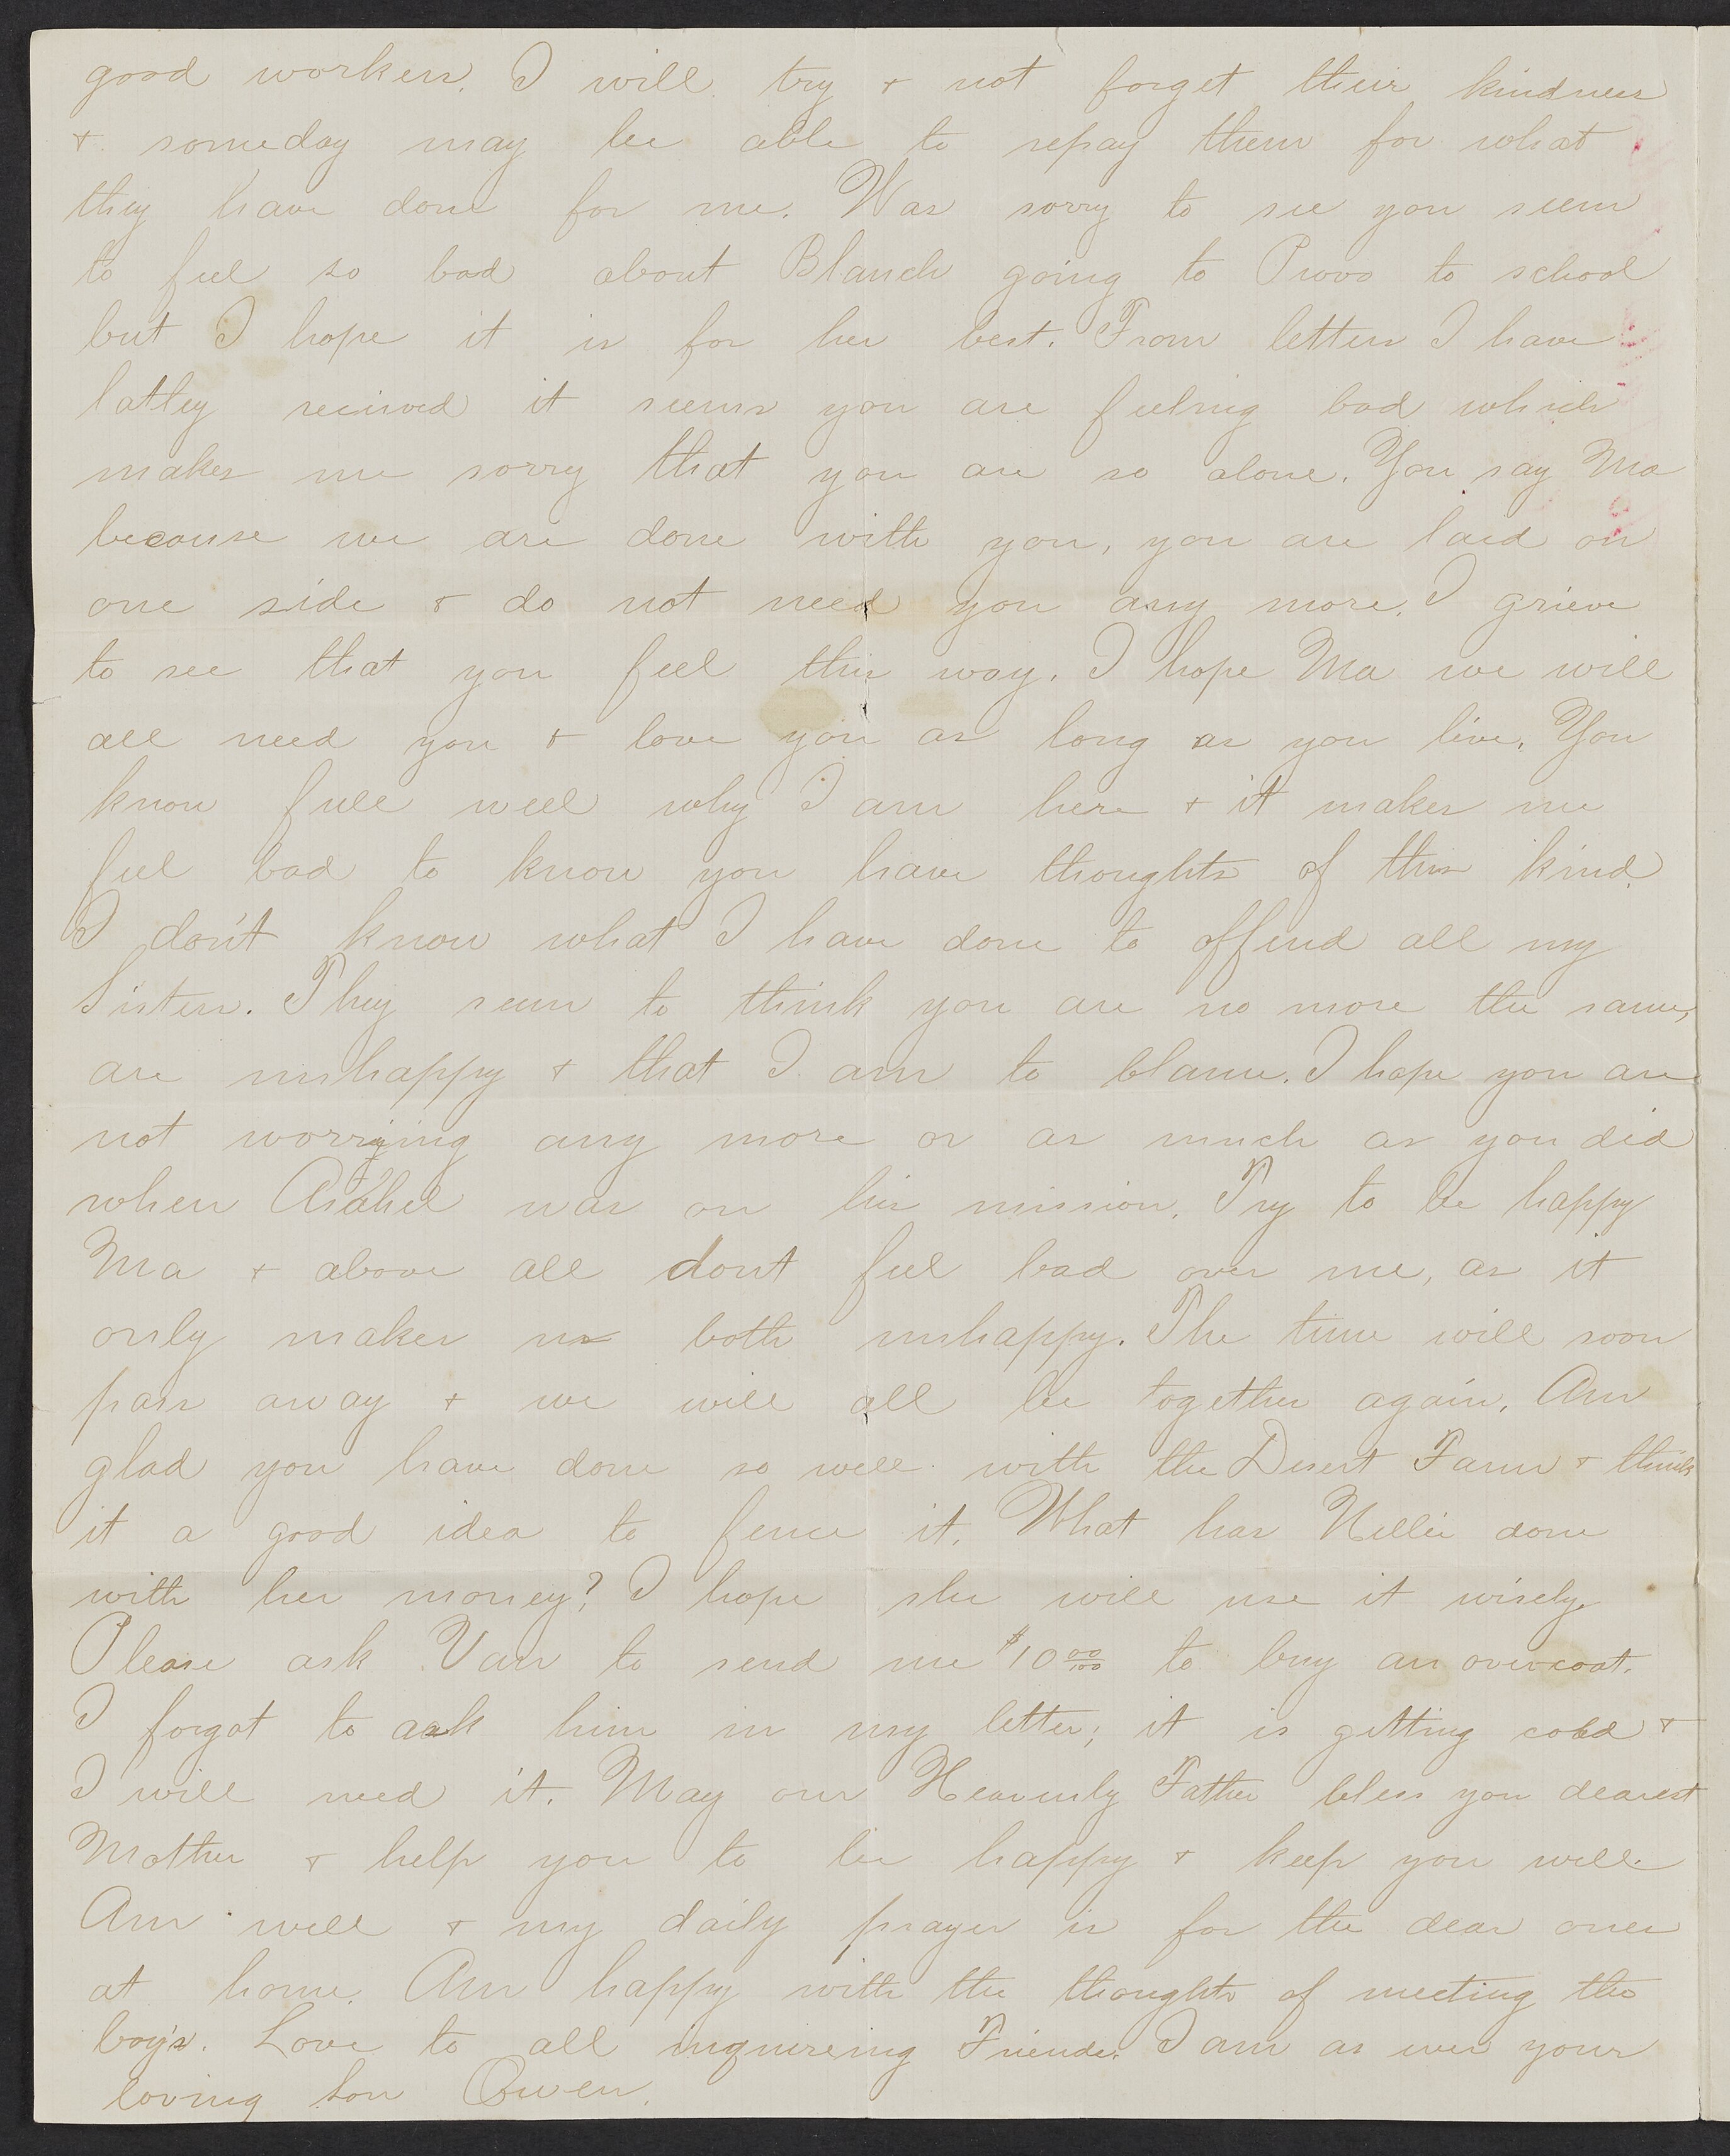 good workers. I will try & not forget their kindness
& someday may be able to repay them for what
they have done for me. Was sorry to see you seem
to feel so bad about Blanch going to Provo to school
but I hope it is for her best. From letters I have
latley recieved it seems you are feeling bad which
makes me sorry that you are so alone. You say Ma
because we are done with you, you are laid on
one side & do not need you any more. I grieve
to see that you feel this way. I hope Ma we will
all need you & love you as long as you live. You
know full well why I am here & it makes me
feel bad to know you have thoughts of this kind.
I don't know what I have done to offend all my
Sisters. They seem to think you are no more the same,
are unhappy & that I am to blame. I hope you are
not worrying any more or as much as you did
when Asahel was on his mission. Try to be happy
Ma & above all dont feel bad over me, as it
only makes us both unhappy. The time will soon
pass away & we will all be together again. Am
glad you have done so well with the Desert Farm & think
it a good idea to fence it. What has Nellie done
with her money? I hope she will use it wisely.
Please ask Van to send me $10 00/100 to buy an overcoat.
I forgot to ask him in my letter; it is getting cold &
I will need it. May our Heavenly Father bless you dearest
Mother & help you to be happy & keep you well.
Am well & my daily prayer is for the dear ones
at home. Am happy with the thoughts of meeting the
boy's. Love to all inquireing Friends. I am as ever your
loving Son Owen.